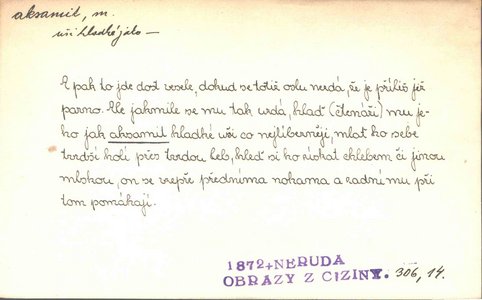 aksamit, m.
uši hladké jako —
E pak to jde dost vesele, dokud se totiž oslu nezdá, že je příliš již
parno. Ale jakmile se mu tak uzdá, hlaď (čtenáři) mu je-
ho jak aksamit hladké uši co nejlíbezněji, mlať ho sebe
tvrdší holí přes tvrdou leb, hleď si ho získat chlebem či jinou
mlskou, on se vzepře předníma nohama a zadní mu při
tom pomáhají.
1872 + NERUDA
OBRAZY Z CIZINY. 306, 14.